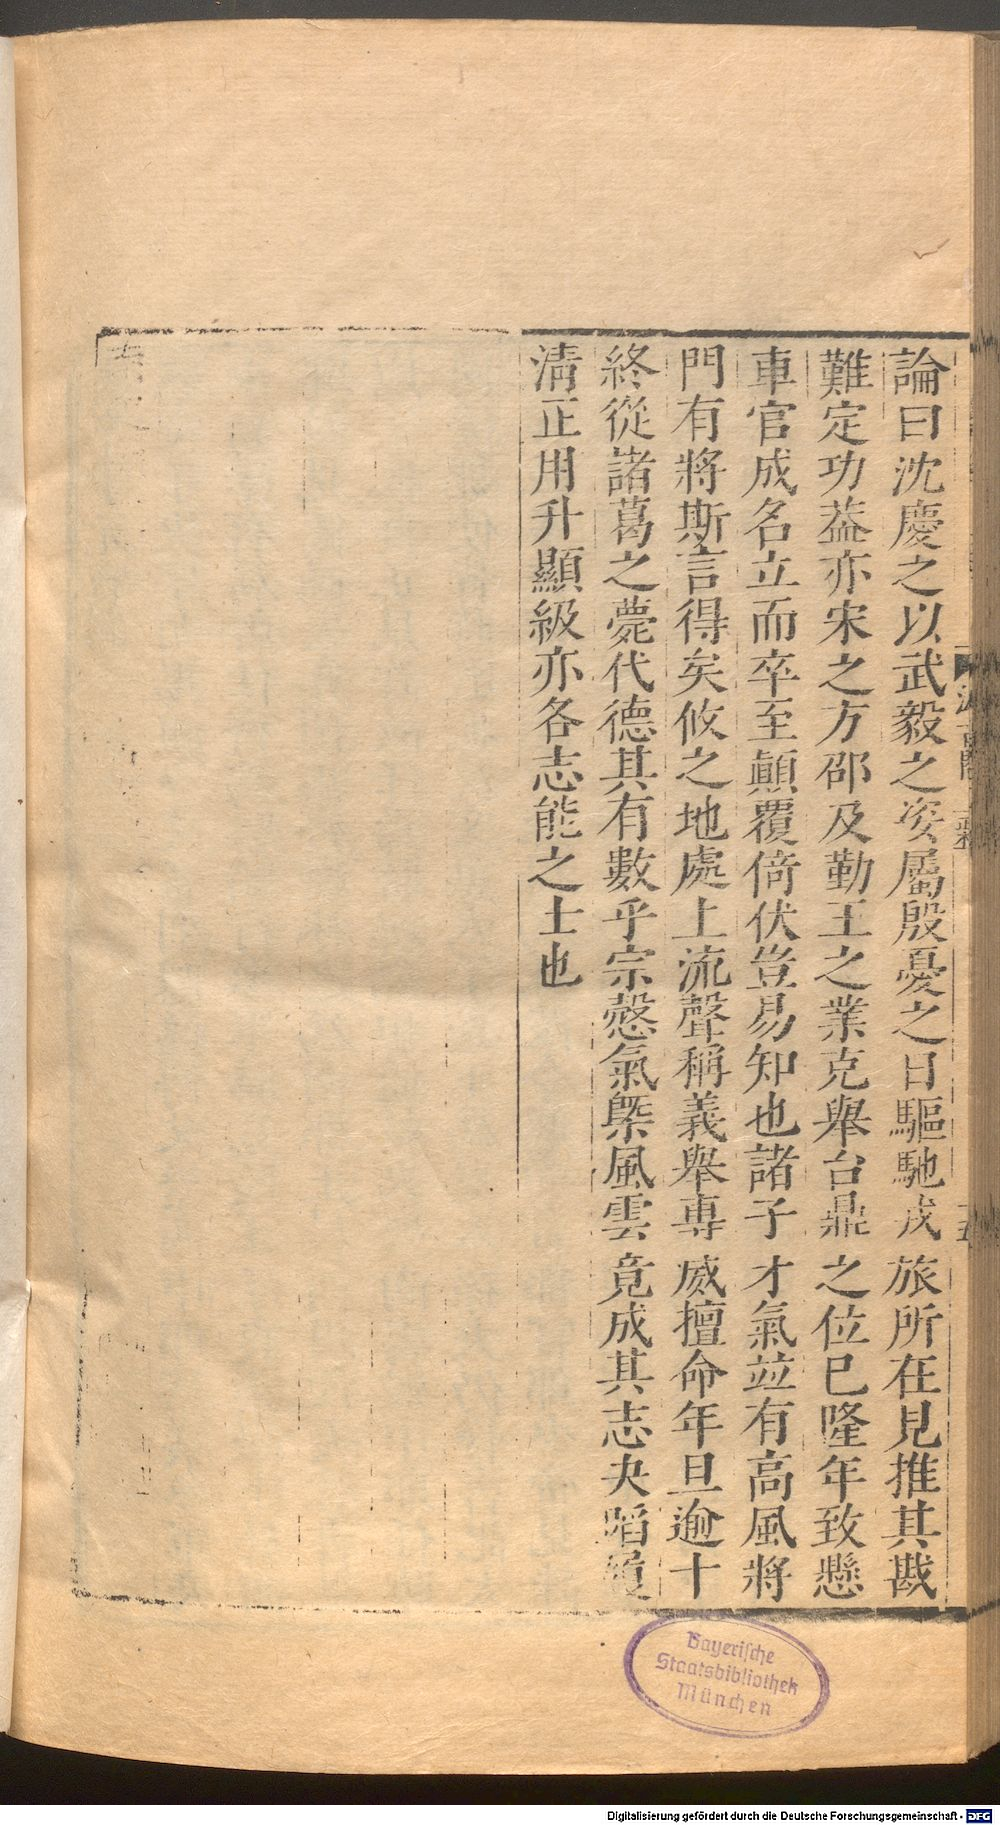 論曰沈慶之以武毅之姿屬殷憂之日驅馳戎旅所在見推其戡
難定功葢亦宋之方邵及勤王之業克舉台鼎之位已隆年致懸
車官成名立而卒至顛覆倚伏豈易知也諸子才氣竝有高風將
門有將斯言得矣攸之地處上流聲稱義舉専威擅命年且逾十
終從諸葛之薨代德其有數乎宗慤氣槩風雲竟成其志夬蹈履
清正用升顯級亦各志能之士也
Bayerische
Staatsbibliothek
München
Digitalisierung gefördert durch die Deutsche Forschungsgemeinschaft - DFG